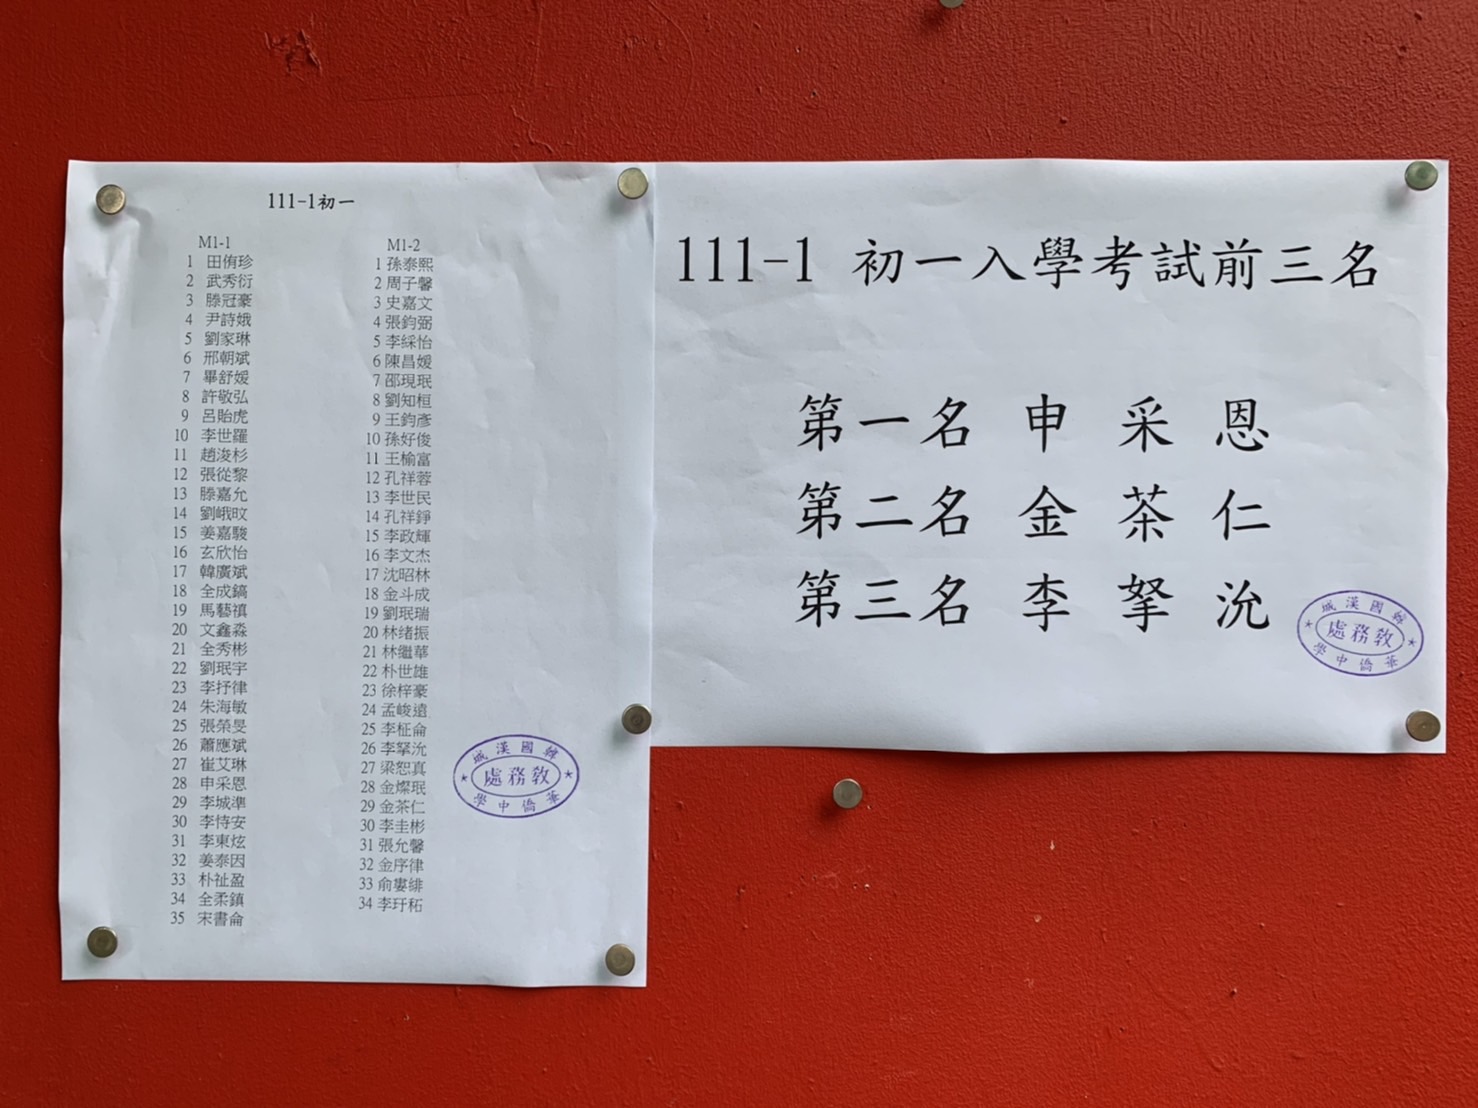 111-1初一
M1-1
1 田侑珍
2 武秀衍
3 滕冠豪
4 尹詩娥
5 劉家琳
6 邢朝斌
7 畢舒媛
8 許敬弘
9 呂貽虎
10 李世羅
11 趙浚杉
12 張從黎
13 滕嘉允
14 劉峨旼
15 姜嘉駿
16 玄欣怡
17 韓廣斌
18 全成鎬
19 馬藝禛
20 文鑫淼
21 全秀彬
22 劉珉宇
23 李抒律
24 朱海敏
25 張榮旻
26 蕭應斌
27 崔艾琳
28 申采恩
29 李城準
30 李恃安
31 李東炫
32 姜泰因
33 朴祉盈
34 全柔鎮
35 宋書侖
M1-2
1 孫泰熙
2 周子馨
3 史嘉文
4 張鈞弼
5 李綵怡
6 陳昌媛
7 邵現珉
8 劉知桓
9 王鈞彥
10 孫好俊
11 王榆富
12 孔祥蓉
13 李世民
14 孔祥錚
15 李政輝
16 李文杰
17 沈昭林
18 金斗成
19 劉珉瑞
20 林绪振
21 林繼華
22 朴世雄
23 徐梓豪
24 孟峻遠
25 李柾侖
26 李拏沇
27 梁恕真
28 金燦珉
29 金茶仁
30 李圭彬
31 張允馨
32 金序律
33 俞婁緋
34 李玗秳
韓國漢城
教務處
華僑中學
111-1 初一入學考試前三名
第一名 申 采 恩
第二名 金 茶 仁
第三名 李 拏 沇
韓國漢城
教務處
華僑中學